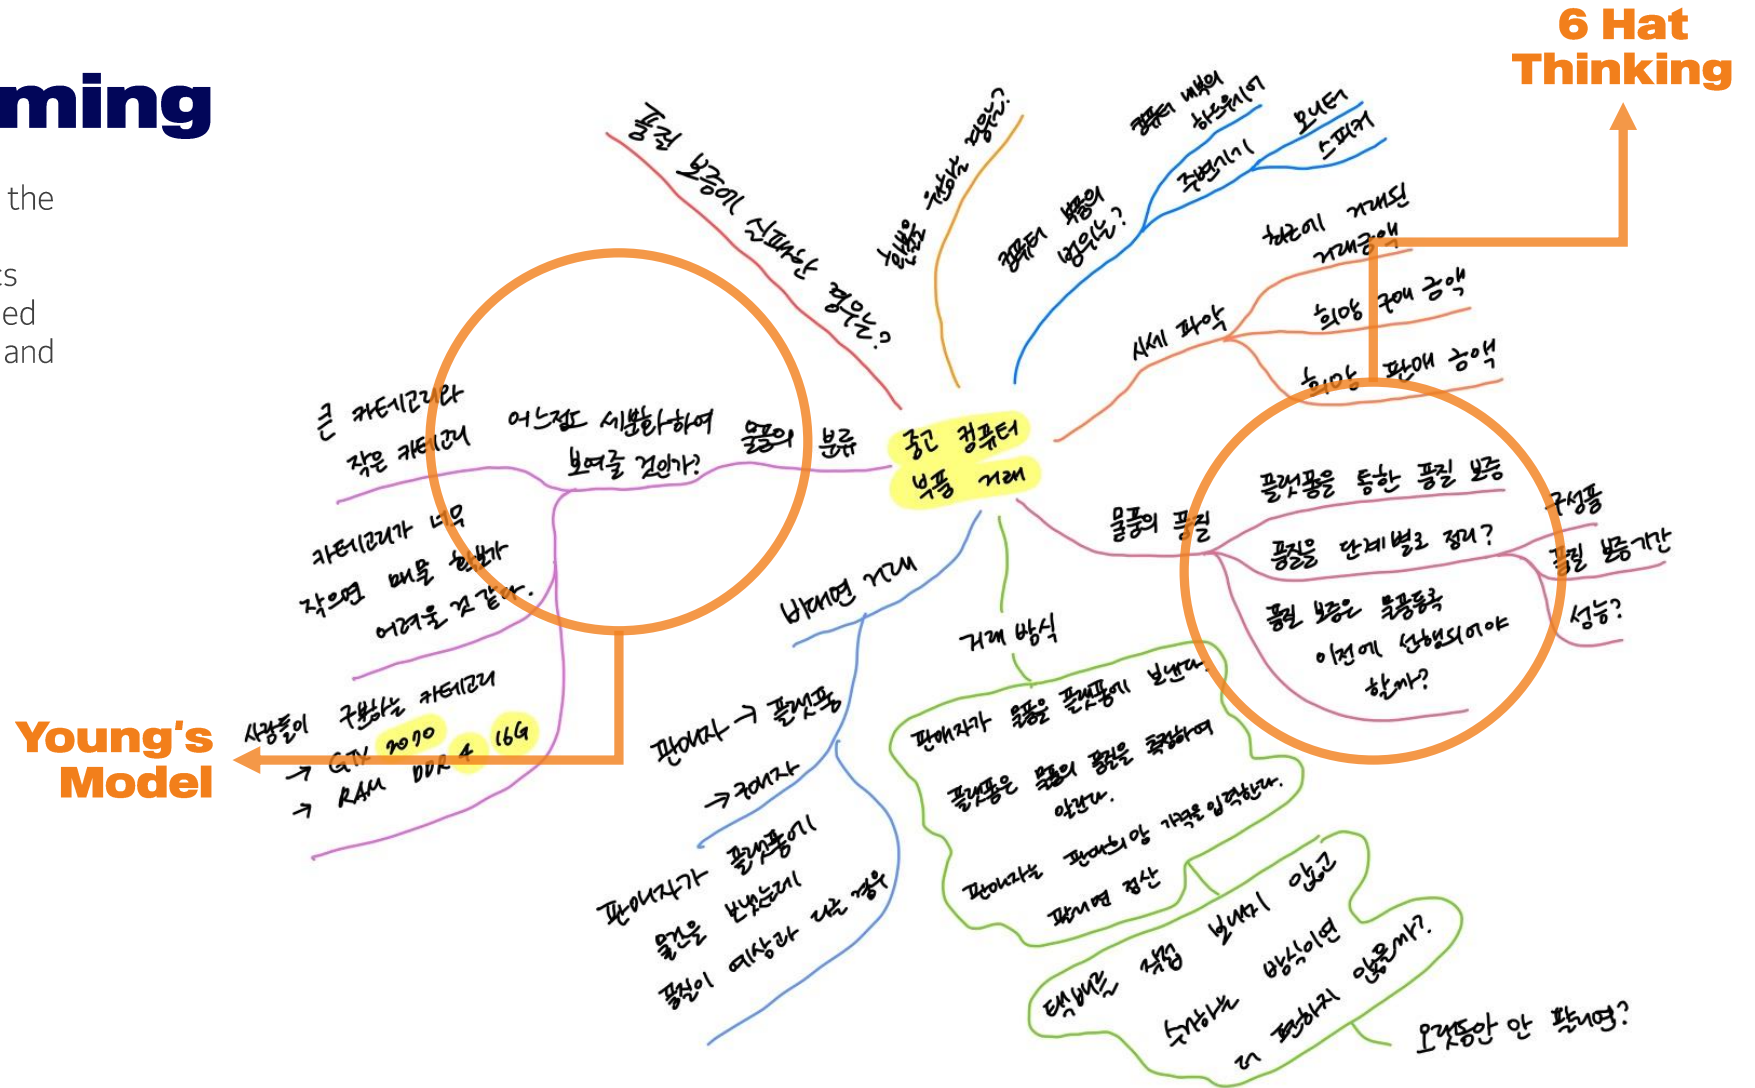 ming
the
ts
ed
and
6 Hat
Thinking
Young's
Model
중고 컴퓨터
부품 거래
품질 보증에 실패한 경우는?
환불을 원하는 경우는?
컴퓨터 부품의
범위는?
컴퓨터 내부의
하드웨어
주변기기
모니터
스피커
시세 파악
최근에 거래된
거래금액
희망 구매 금액
희망 판매 금액
물품의 품질
플랫폼을 통한 품질 보증
품질을 단계별로 정리?
구성품
품질 보증기간
성능?
품질 보증은 물품등록
이전에 선행되어야
할까?
거래 방식
판매자가 물품을 플랫폼에 보낸다.
플랫폼은 물품의 품질을 측정하여
알린다.
판매자는 판매희망 가격을 입력한다.
팔리면 정산
택배를 직접 보내지 않고
수거하는 방식이면
더 편하지 않을까?
오랫동안 안 팔리면?
비대면 거래
판매자 → 플랫폼
→ 구매자
판매자가 플랫폼에
물건을 보냈는데
품질이 예상과 다른 경우
물품의 분류
어느정도 세분화하여
보여줄 것인가?
큰 카테고리와
작은 카테고리
카테고리가 너무
작으면 매물 확보가
어려울 것 같다.
사람들이 구분하는 카테고리
→ GTX 2070
→ RAM DDR 4 16G